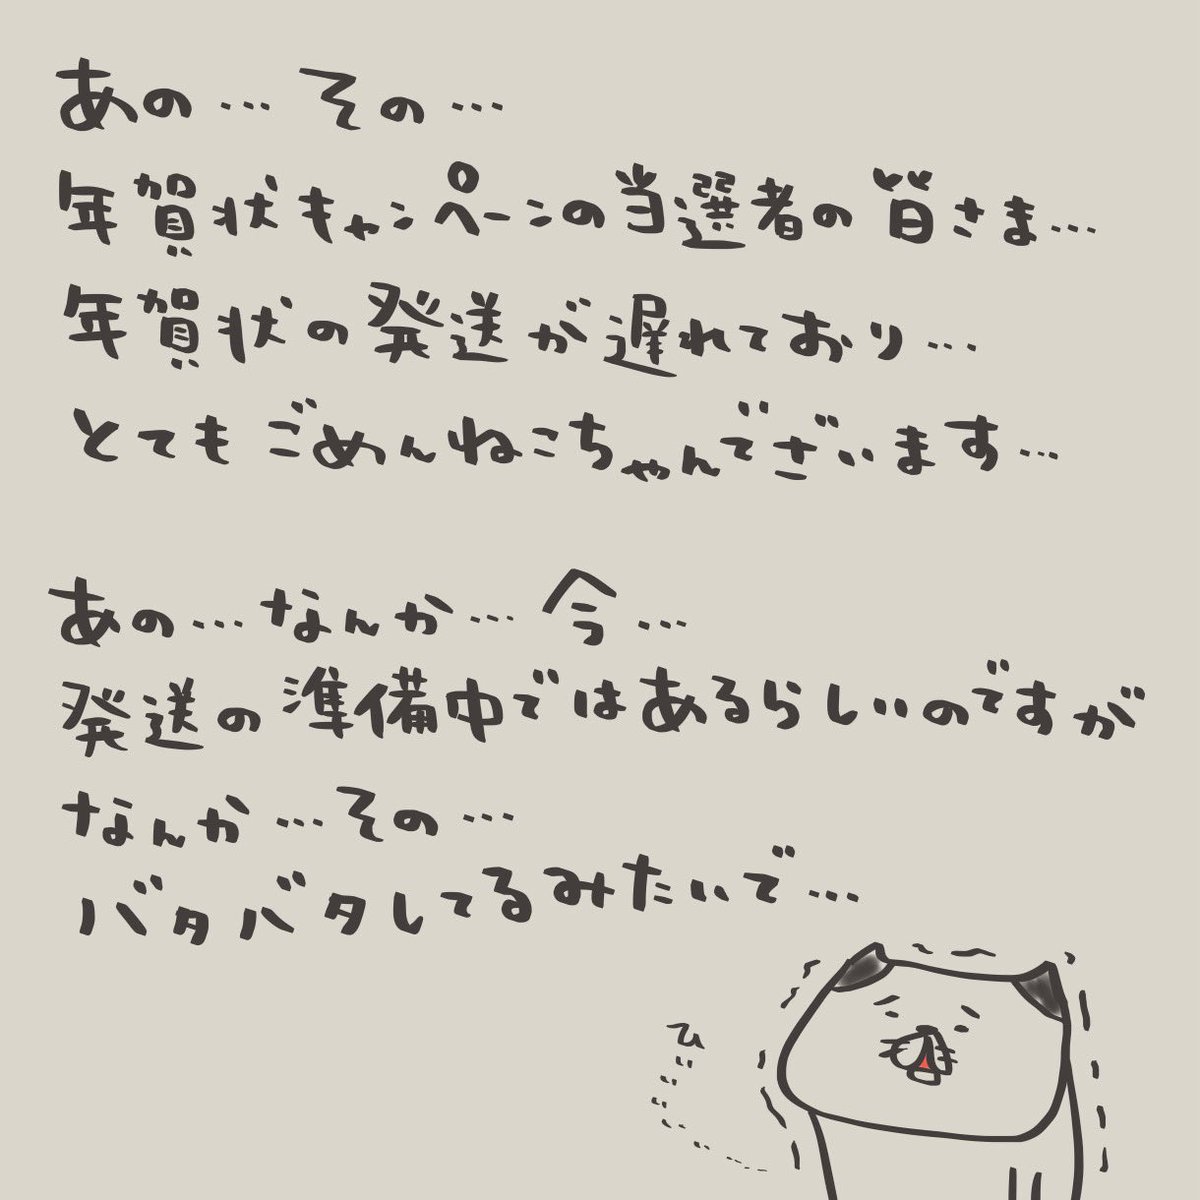 あの…その…
年賀状キャンペーンの当選者の皆さま…
年賀状の発送が遅れており…
とてもごめんねこちゃんでございます…
あの…なんか…今…
発送の準備中ではあるらしいのですが
なんか…その…
バタバタしてるみたいで…
ひ